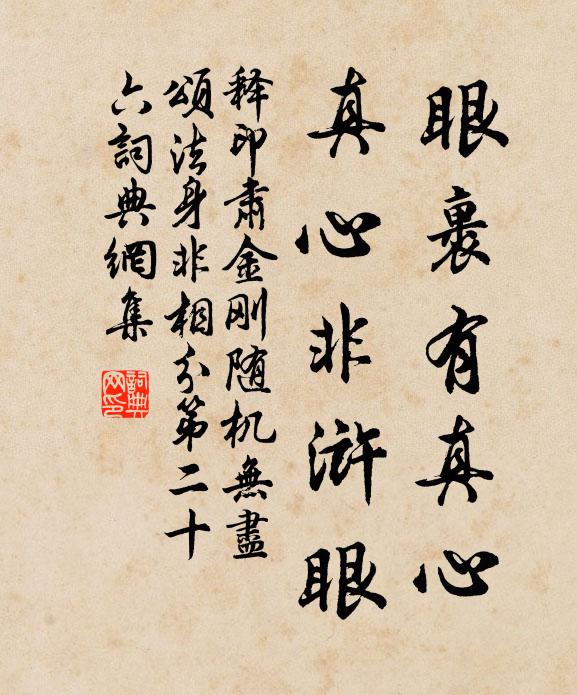 眼裏有真心
真心非滸眼
释印肅金刚随机無盡
頌法身非相分第二十
六詞典網集
詞典
网印